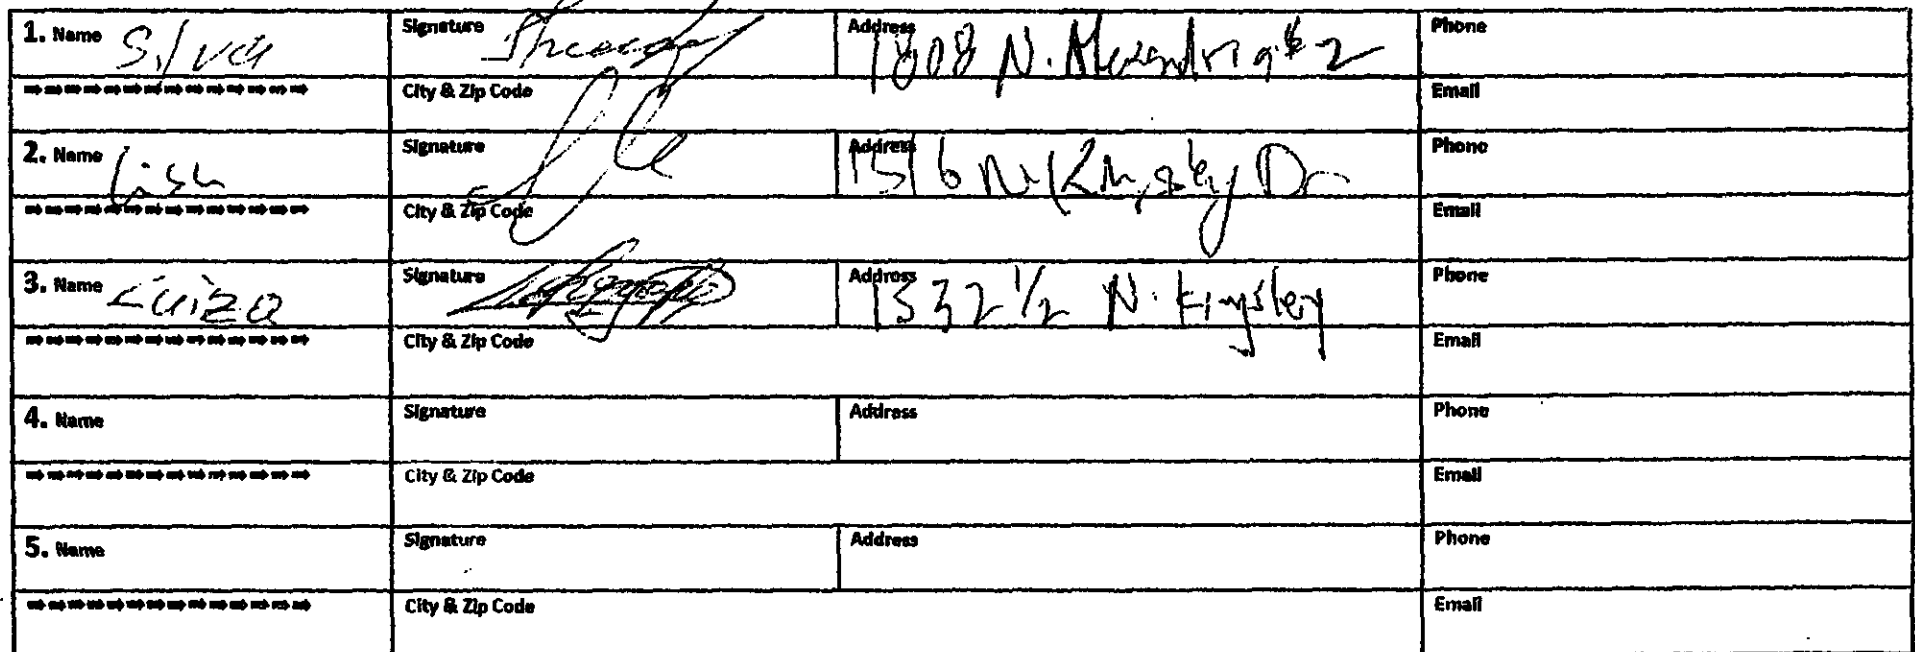 1. Name Silva Signature Address 1808 N. Alexandria #2 Phone
City & Zip Code Email
2. Name Signature Address 1516 N. Kingsley Dr Phone
City & Zip Code Email
3. Name Luiza Signature Address 1332 1/2 N. Kingsley Phone
City & Zip Code Email
4. Name Signature Address Phone
City & Zip Code Email
5. Name Signature Address Phone
City & Zip Code Email